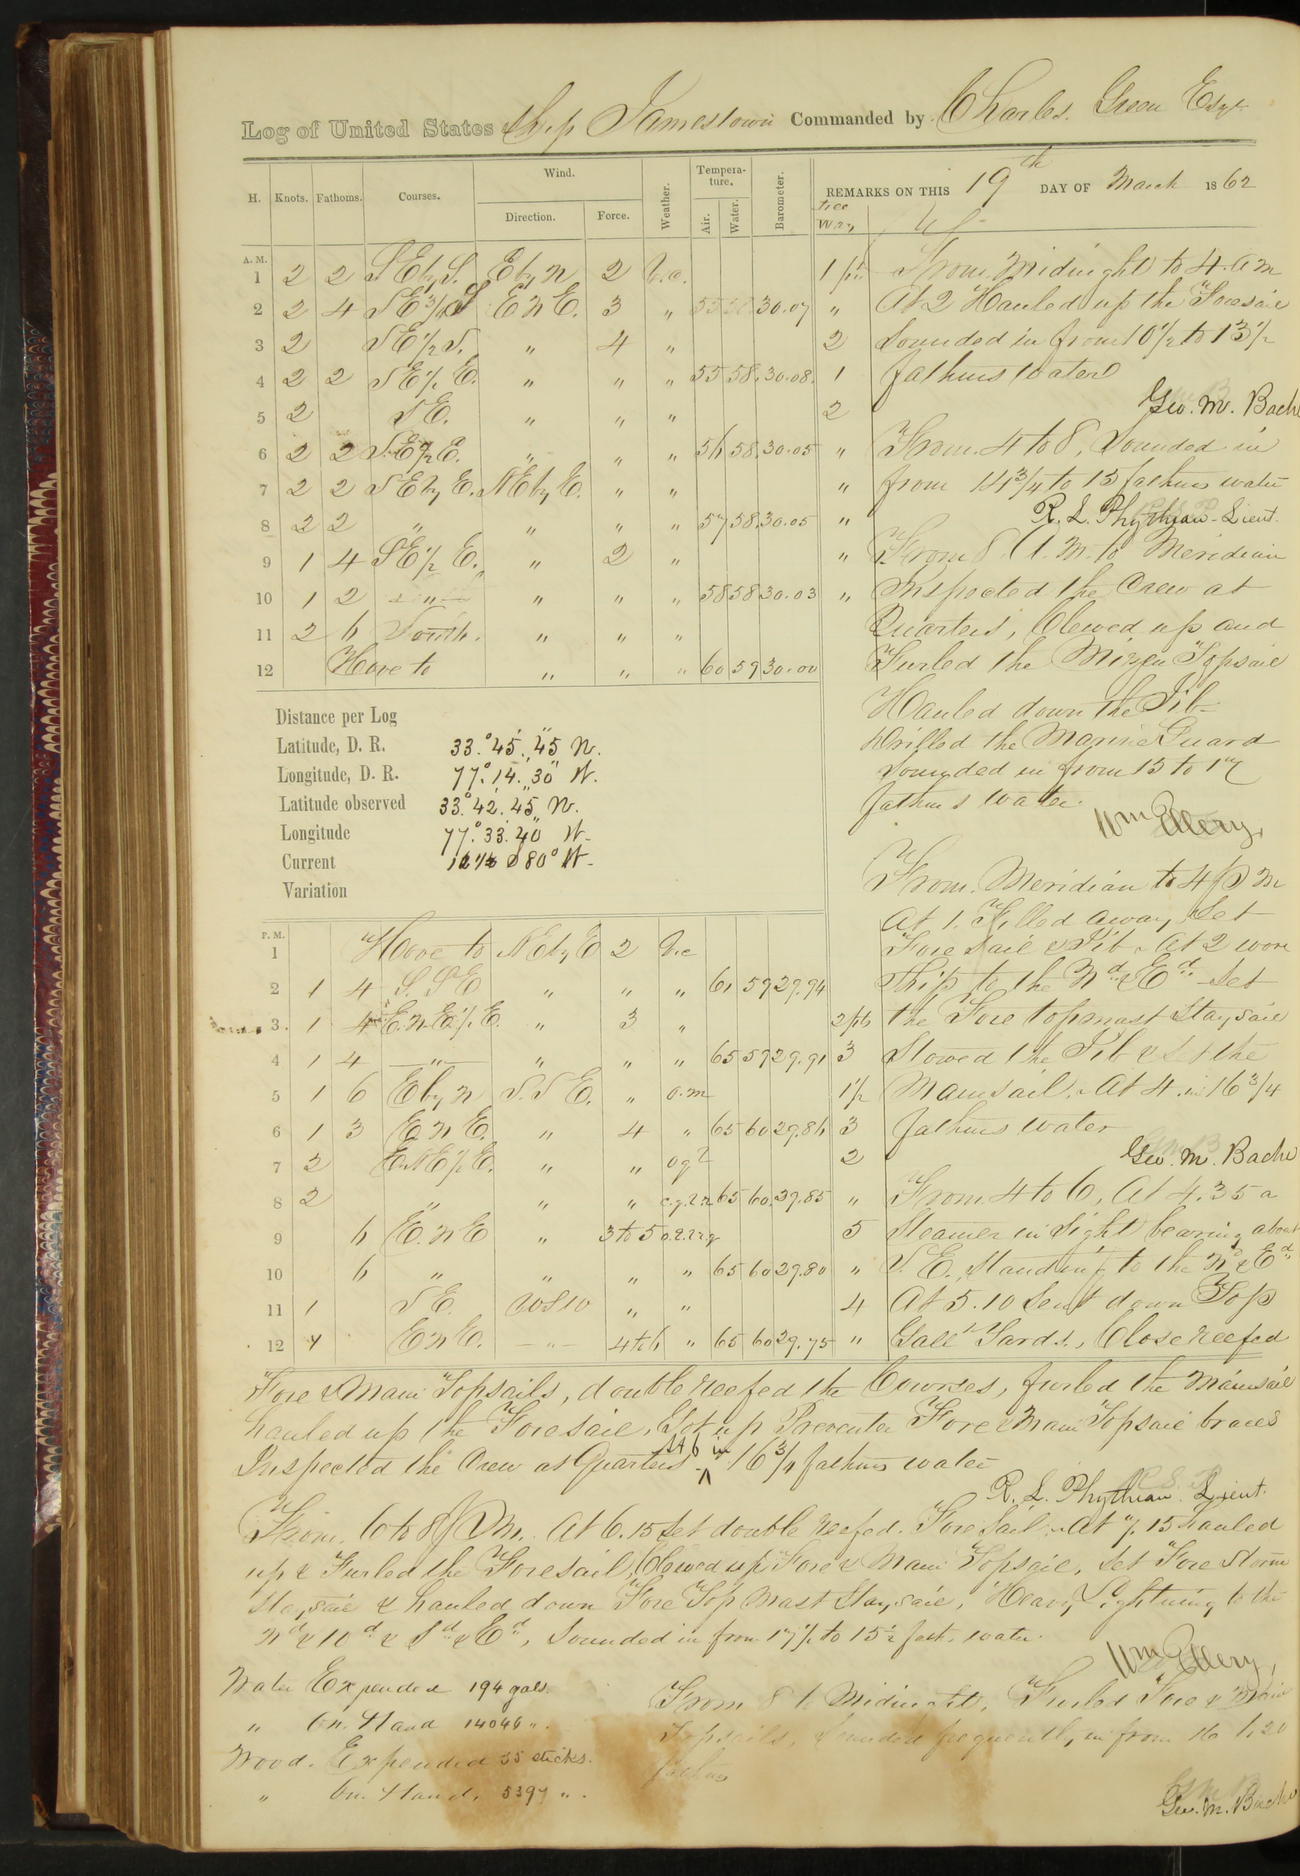 Log of United States Ship Jamestown Commanded by Charles Green Esqr
H. Knots. Fathoms. Courses. Wind. Direction. Force. Weather. Tempera-ture. Air. Water. Barometer. REMARKS ON THIS 19th DAY OF March 1862
Lee Way
A.M.
1 2 2 SEbyS. EbyN 2 b.c. 1 pt
2 2 4 SE3/4S ENE. 3 " 55 58 30.07 "
3 2 SE1/2S. " 4 " 2
4 2 2 SE1/2E. " " " 55 58. 30.08. 1
5 2 SE. " " " 2
6 2 2 S.E1/2E. " " " 56 58. 30.05 "
7 2 2 SEbyE. NEbyE. " " "
8 2 2 " " " " 57 58. 30.05 "
9 1 4 SE1/2E. " 2 " "
10 1 2 " " " " 58 58 30.03 "
11 2 6 South. " " "
12 Hove to " " " 60 59 30.00
From Midnight to 4 a m
At 2 Hauled up the Foresail
Sounded in from 10 1/2 to 13 1/2
fathms water
Geo. M. Bache
From 4 to 8, Sounded in
from 14 3/4 to 15 fathms water
R. L. Phythian - Lieut.
From 8 A. M. to Meridian
Inspected the Crew at
Quarters, Clewed up and
Furled the Mizen Topsail
Hauled down the Jib
Drilled the Marine Guard
Sounded in from 15 to 17
fathms water.
Wm Ellery,
Distance per Log
Latitude, D. R. 33.° 45.' 45" N.
Longitude, D. R. 77.° 14.' 30" W.
Latitude observed 33.° 42.' 45" N.
Longitude 77.° 33.' 40" W.
Current S 80° W.
Variation
P.M.
1 Hove to NEbyE 2 b.c
2 1 4 S.SE " " " 61 59 29.94
3. 1 4 E.NE1/2E. " 3 " 2 pts
4 1 4 " " " " 65 59 29.91 3
5 1 6 EbyN S.SE. " o.m 1 1/2
6 1 3 ENE. " 4 " 65 60 29.86 3
7 2 ENE1/2E. " " o g l 2
8 2 " " " 65 60. 29.85 "
9 6 E.NE " 3 to 5 5
10 6 " " " " 65 60 29.80 "
11 1 SE. WSW " " 4
12 4 ENE. " 4 to 6 " 65 60 29.75 "
From Meridian to 4 P M
At 1. Filled away, Set
Foresail & Jib. At 2 wore
Ship to the Nd & Ed Set
the Fore topmast Staysail
Stowed the Jib & Set the
Mainsail. At 4. in 16 3/4
fathms water
Geo. M. Bache
From 4 to 6, At 4.35 a
Steamer in sight bearing about
S. E., Standing to the Nd & Ed
At 5.10 Sent down Top
Gallt Yards, Close reefed
Fore & Main Topsails, double reefed the Courses, furled the Mainsail
hauled up the Foresail, Got up Preventer Fore & Main Topsail braces
Inspected the Crew at Quarters At 6 in 16 3/4 fathms water
R. L. Phythian. Lieut.
From 6 to 8 P M. At 6.15 set double reefed. Foresail. At 7.15 hauled
up & Furled the Foresail, Clewed up Fore & Main Topsail, set Fore Storm
Staysail & hauled down Fore Top Mast Staysail, Heavy Lightning to the
Nd & Wd & Sd & Ed, Sounded in from 17 1/2 to 15 1/2 fath. water.
Wm Ellery,
Water Expended 194 galls.
" On. Hand 14046 ".
Wood. Expended 55 sticks.
" On. Hand. 5397 ".
From 8 to Midnight, Furled Fore & Main
Topsails, Sounded frequently, in from 16 to 20
fathms
Geo. M. Bache